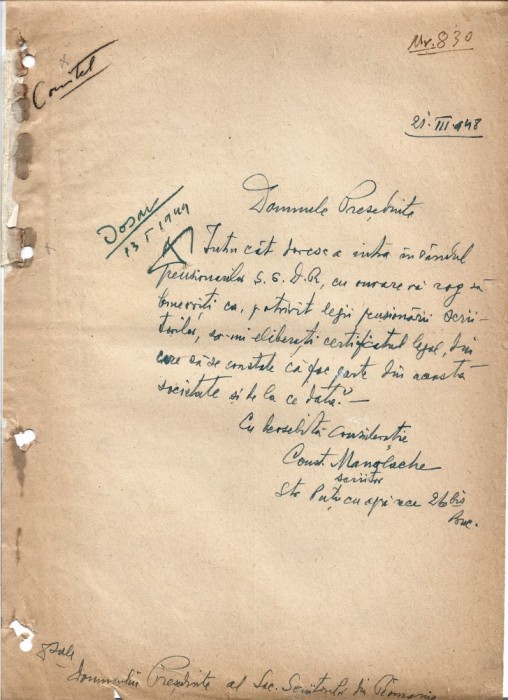 Nr. 830
Comitet
21.III.948
Dosar
13 I 1949
Domnule Președinte
Întru cât doresc a intra în rândul
pensionarilor S.S.D.R, cu onoare vă rog să
binevoiți ca, potrivit legii pensionării scrii-
torilor, să-mi eliberați certificatul legal, din
care să se constate că fac parte din această
societate și de la ce dată. —
Cu deosebită considerație
Const. Manolache
scriitor
Str Puțu cu apă rece 26 bis
Buc.
Domnului Președinte al Soc. Scriitorilor din România